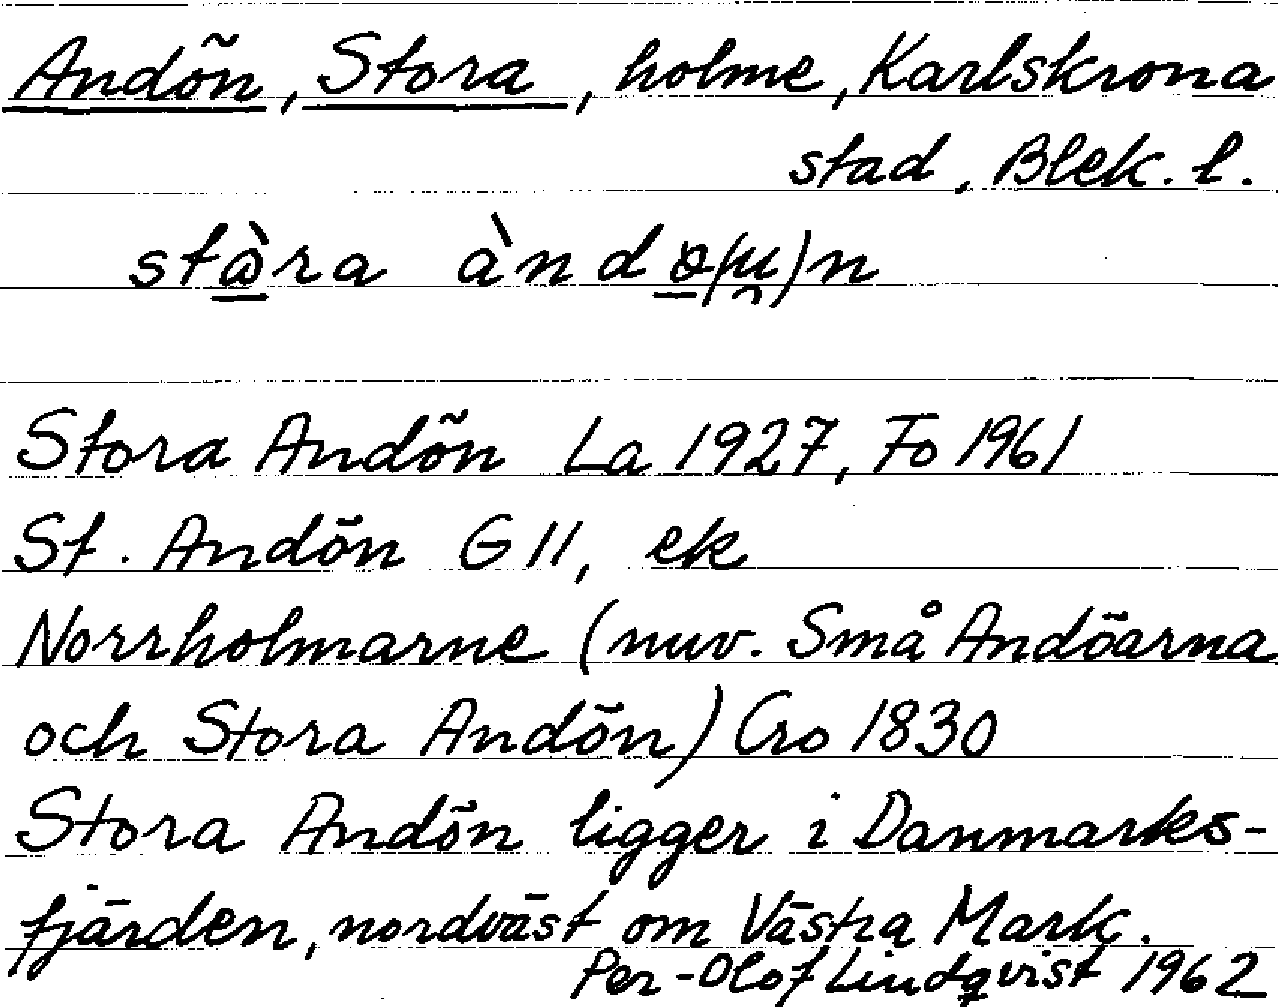 Andön, Stora, holme, Karlskrona
stad, Blek. l.
Stora Andön La 1927, Fo 1961
St. Andön G 11, ek
Norrholmarne (nuv. Små Andöarna
och Stora Andön) Cro 1830
Stora Andön ligger i Danmarks-
fjärden, nordväst om Västra Mark.
Per-Olof Lindqvist 1962